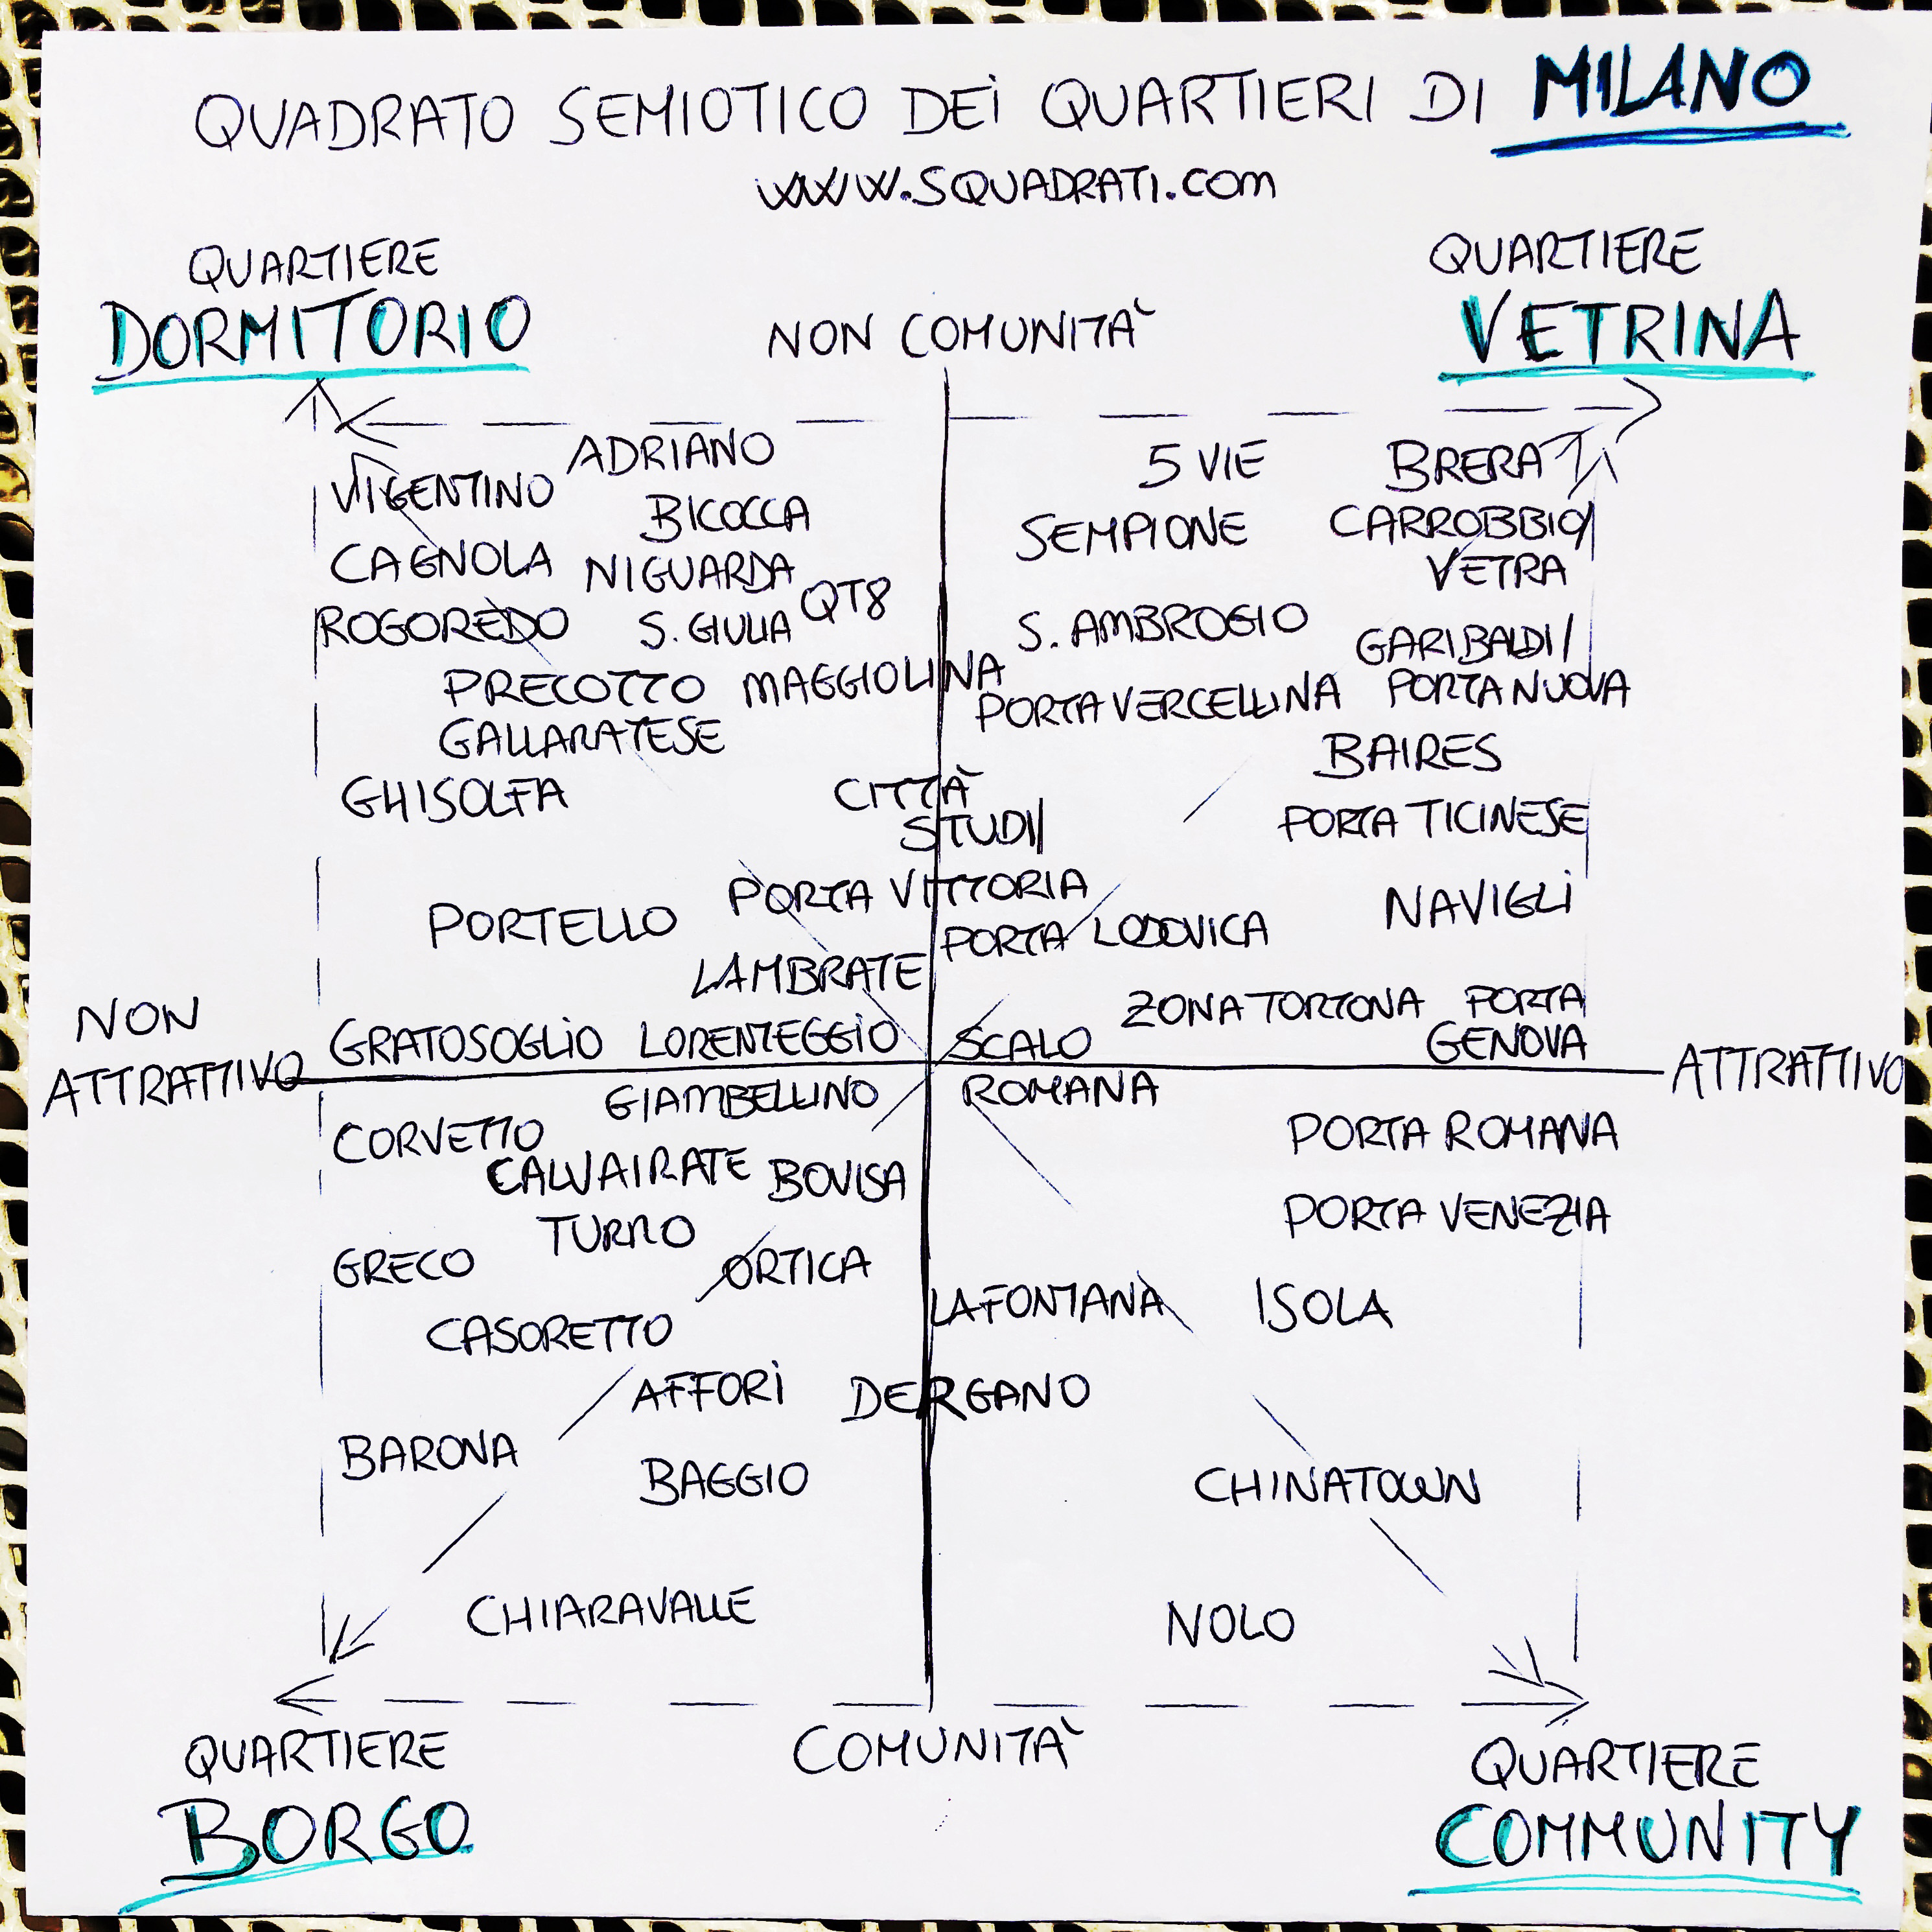 QUADRATO SEMIOTICO DEI QUARTIERI DI MILANO
WWW.SQUADRATI.COM
QUARTIERE
DORMITORIO
NON COMUNITÀ
QUARTIERE
VETRINA
ADRIANO
VIGENTINO
BICOCCA
CAGNOLA
NIGUARDA
QT8
ROGOREDO
S. GIULIA
PRECOTTO
MAGGIOLINA
GALLARATESE
GHISOLFA
CITTÀ
STUDI/
PORTA VITTORIA
PORTELLO
LAMBRATE
GRATOSOGLIO
LORENTEGGIO
5 VIE
BRERA
SEMPIONE
CARROBBIO/
VETRA
S. AMBROGIO
GARIBALDI/
PORTA NUOVA
PORTA VERCELLINA
BAIRES
PORTA TICINESE
NAVIGLI
PORTA LODOVICA
ZONA TORTONA
PORTA
GENOVA
SCALO
ROMANA
NON
ATTRATTIVO
ATTRATTIVO
GIAMBELLINO
CORVETTO
CALVAIRATE
BOVISA
TURRO
GRECO
ORTICA
CASORETTO
AFFORI
DERGANO
BARONA
BAGGIO
CHIARAVALLE
PORTA ROMANA
PORTA VENEZIA
LAFONTANA
ISOLA
CHINATOWN
NOLO
QUARTIERE
BORGO
COMUNITÀ
QUARTIERE
COMMUNITY